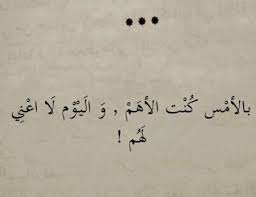 ***
بالأمْس كُنْت الأهَمْ , وَ اليَوْم لَا اعْنِي
لَهُم !